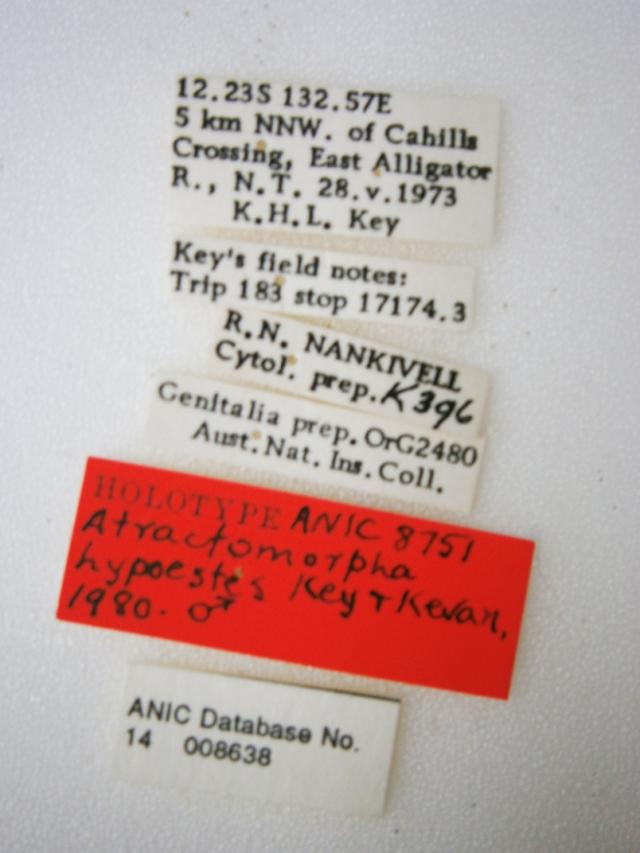 12.23S 132.57E
5 km NNW. of Cahills
Crossing, East Alligator
R., N.T. 28.v.1973
K.H.L. Key
Key's field notes:
Trip 183 stop 17174.3
R.N. NANKIVELL
Cytol. prep. K396
Genitalia prep. OrG2480
Aust. Nat. Ins. Coll.
HOLOTYPE ANIC 8751
Atractomorpha
hypoestes Key + Kevan,
1980. ♂
ANIC Database No.
14 008638